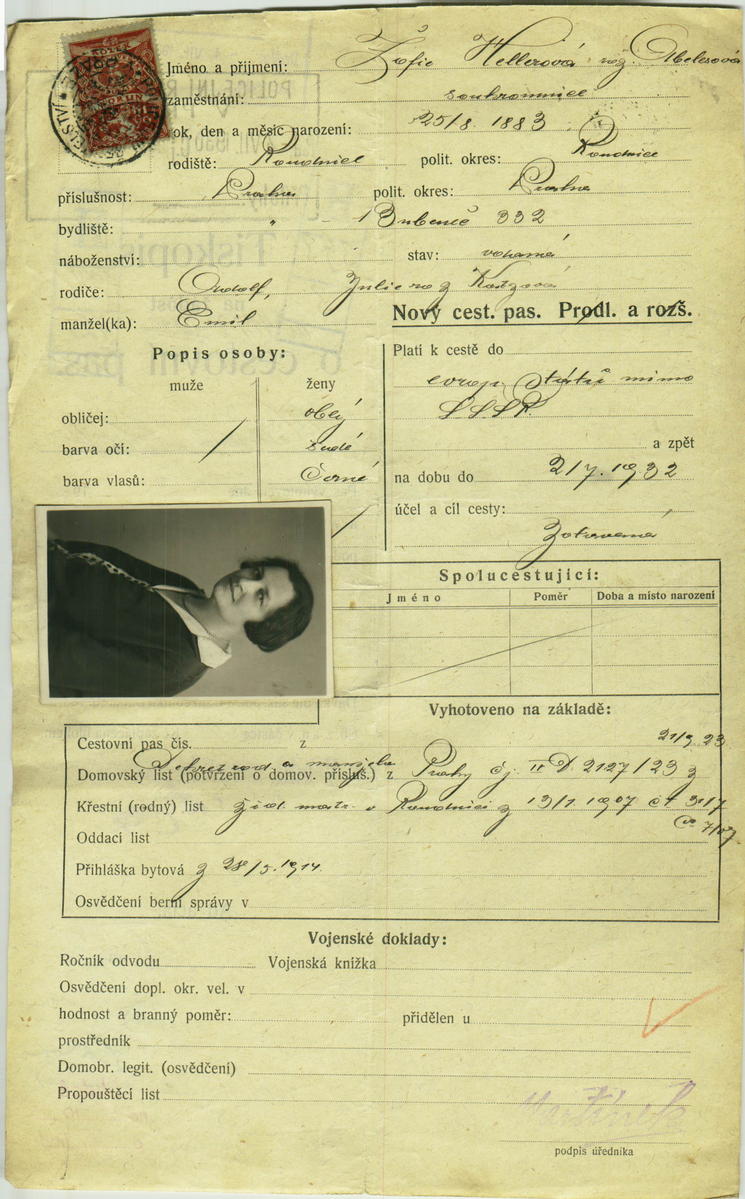 Jméno a přijmení: Žofie Hellerová roz. Abelesová
zaměstnání: soukromnice
rok, den a měsíc narození: 25/8. 1883
rodiště: Roudnice polit. okres: Roudnice
příslušnost: Praha polit. okres: Praha
bydliště: " - Bubeneč 332
náboženství: stav: vdaná
rodiče: Rudolf, Julie roz
manžel(ka): Emil
Nový cest. pas. Prodl. a rozš.
Popis osoby:
muže ženy
obličej: oblý
barva očí: šedé
barva vlasů: černé
Platí k cestě do
evrop. států mimo
SSSR
a zpět
na dobu do 2/7. 1932
účel a cíl cesty:
Zotavená
Spolucestující:
Jméno Poměr Doba a místo narození
Vyhotoveno na základě:
Cestovní pas čís. z 21/9 23
Dekret rod. a manžela
Domovský list (potvrzení o domov. přísluš.) z Prahy čj. II D 2127/23 z
Křestní (rodný) list žid. matr. v Roudnici z 13/1 1907 čt 317
Oddací list
Přihláška bytová z 28/5. 1914.
Osvědčení berní správy v
Vojenské doklady:
Ročník odvodu Vojenská knížka
Osvědčení dopl. okr. vel. v
hodnost a branný poměr: přidělen u
prostředník
Domobr. legit. (osvědčení)
Propouštěcí list
podpis úředníka